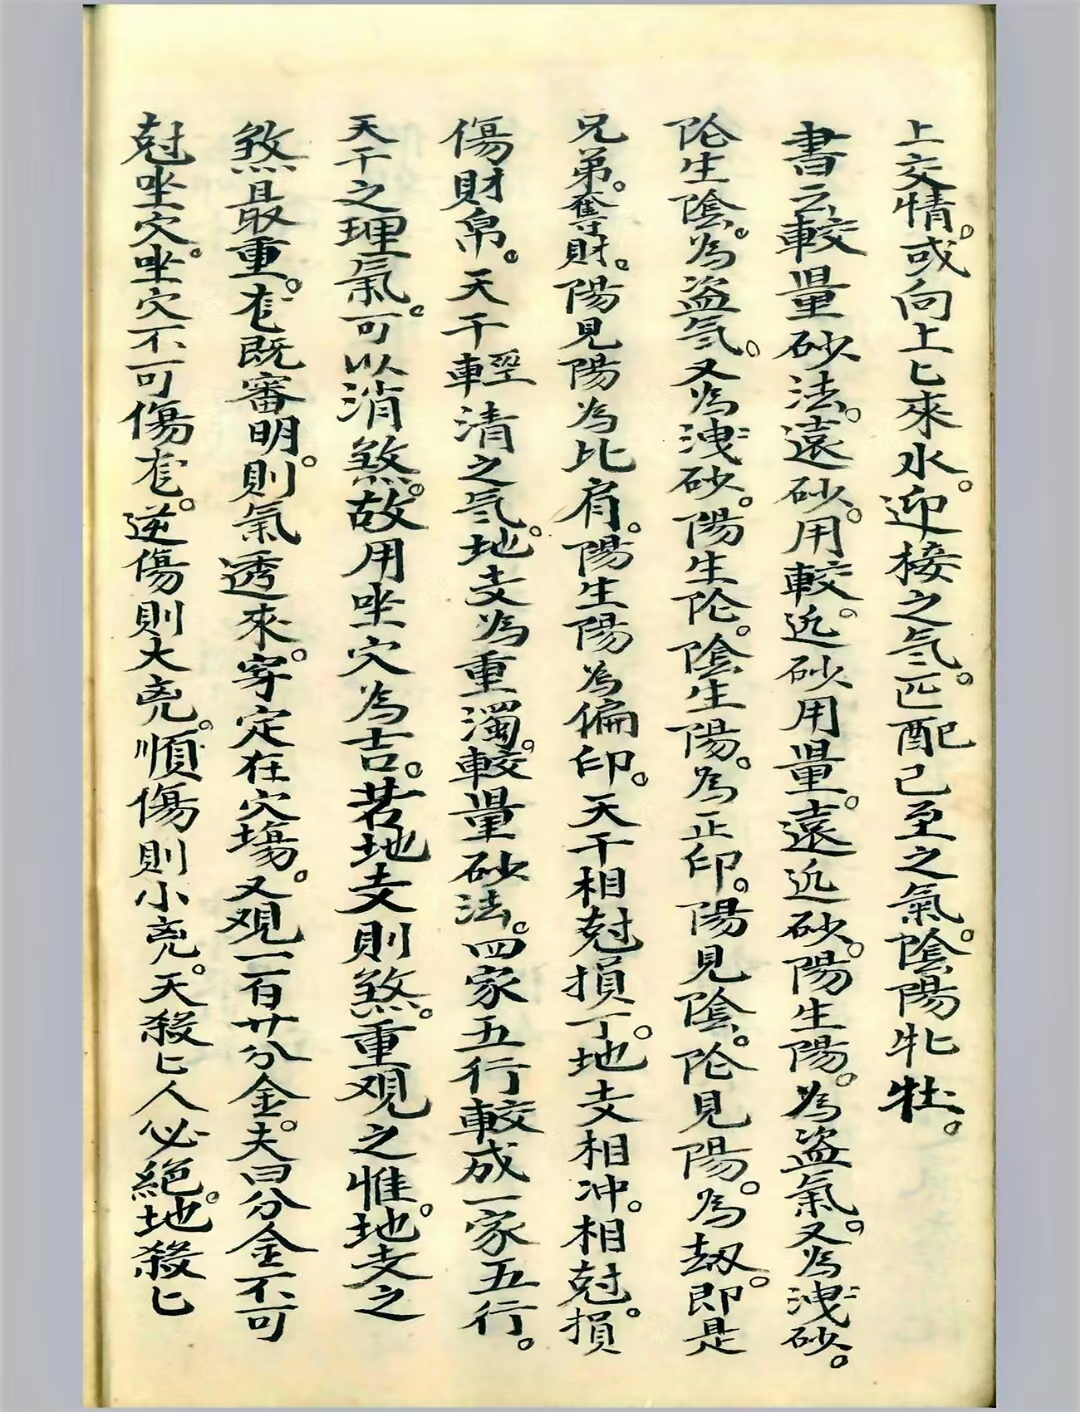 上交情。或向上匕來水。迎接之氣。匹配已至之氣。陰陽牝牡。
書云較量砂法。遠砂。用較。近砂用量。遠近砂。陽生陽。為盜氣。又為洩砂。
阴生陰。為盜氣。又為洩砂。陽生阴。陰生陽。為正印。陽見陰。阴見陽。為刼。即是
兄弟。奪財。陽見陽為比肩。陽生陽為偏印。天干相尅損丁。地支相冲。相尅。損
傷財帛。天干輕清之氣。地支為重濁。較量砂法。四家五行較成一家五行。
天干之理氣。可以消煞。故用坐穴為吉。若地支則煞。重观之惟地支之
煞且最重。龙既審明。則氣透來。穿定在穴塲。又观一百廿分金。夫曰分金不可
尅坐穴。坐穴不可傷龙。逆傷則大㐫。順傷則小㐫。天殺匕人必絕。地殺匕